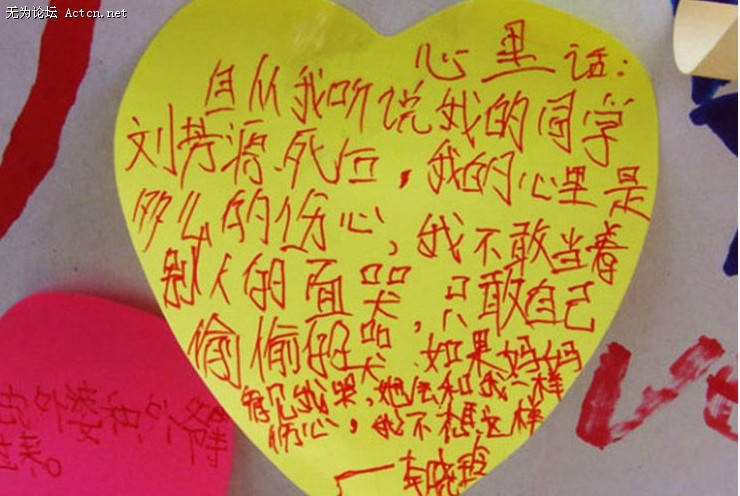 无为论坛 Actcn.net
心里话：
且从我听说我的同学
刘芳源死后，我的心里是
多么的伤心，我不敢当着
别人的面哭，只敢自己
偷偷的哭 如果妈妈
看见我哭，她会和我一样
伤心，我不想这样
——晓